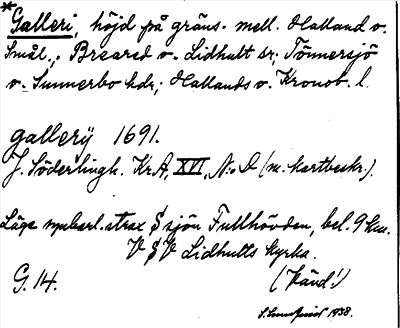 *Galleri, höjd på gräns. mell. Halland o.
Smål., Breared o. Lidhult sr; Tönnersjö
o. Sunnerbo hdr; Hallands o. Kronob. l.
gallerÿ 1691.
J. Söderlingh. KrA, XVI, N:o 2 (m. kartbeskr.).
Läge uppenbarl. strax S sjön Fullhövden, bel. 9 km.
V S V Lidhults kyrka.
G. 14. (Vänd!)
1938.